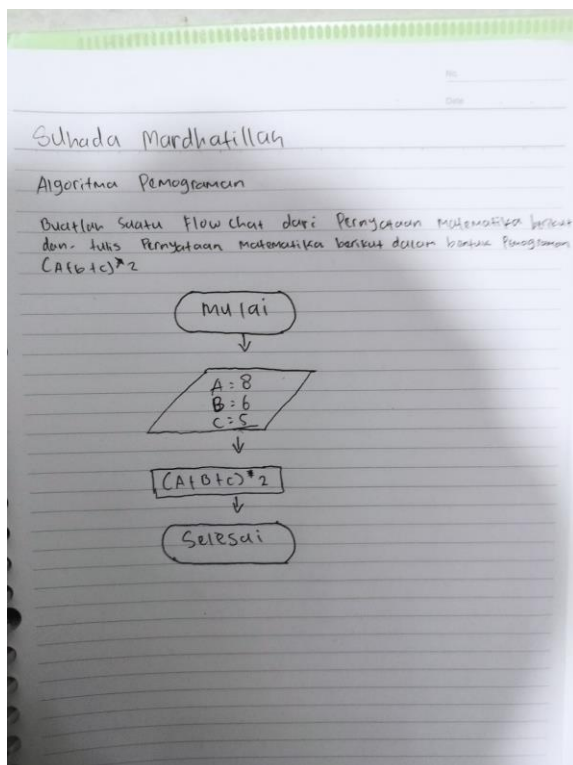 No.
Date
Suhada Mardhatillah
Algoritma Pemograman
Buatlah Suatu Flow chat dari Pernyataan Matematika berikut
dan. tulis Pernyataan Matematika berikut dalam bentuk Pemograman
(A+b+c)*2
Mulai
A = 8
B = 6
C = 5
(A+B+c)*2
Selesai